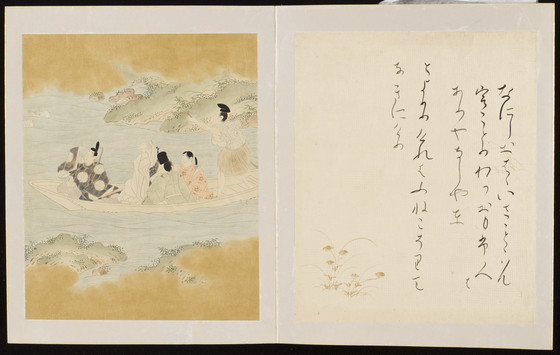 なにしおはゝいさことゝはん
宮ことりわかおもふ人
は
ありやなしやと
とよめりけれはふねこそりて
なきにけり